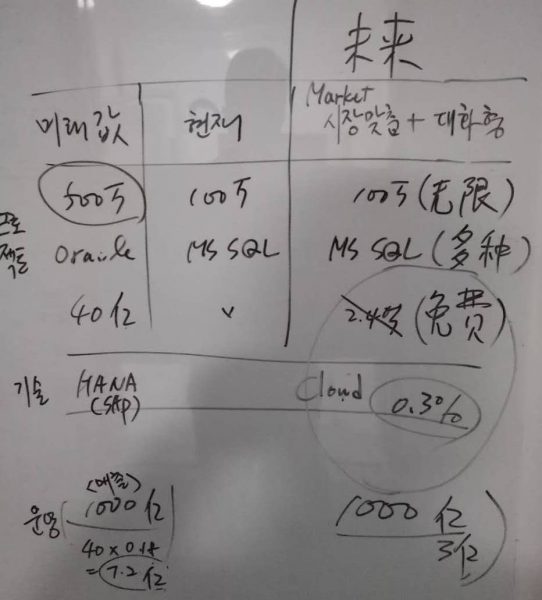 未来
미래값 현재 Market
시장맞춤 + 대화형
500万 100万 100万 (无限)
프로
젝트 Oracle MS SQL MS SQL (多种)
40亿 v (免费)
기술 HANA Cloud 0.3%
(SAP)
운영 (매출)
1000亿 1000亿
40 x 0.18 3亿
= 7.2亿